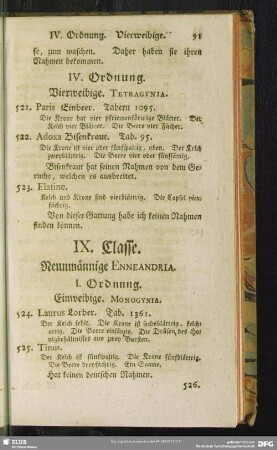 IV. Ordnung. Vierweibige. 91
se, zum waschen. Daher haben sie ihren
Nahmen bekommen.
IV. Ordnung.
Vierweibige. TETRAGYNIA.
521. Paris Einbeer. Tabern 1095.
Die Krone hat vier pfriemenförmige Blätter. Der
Kelch vier Blätter. Die Beere vier Fächer.
522. Adoxa Bisenkraut. Tab. 95.
Die Krone ist vier oder fünfspaltig, oben. Der Kelch
zweyblättrig. Die Beere vier oder fünfsämig.
Bisenkraut hat seinen Nahmen von dem Ge-
ruche, welchen es ausbreitet.
523. Elatine.
Kelch und Krone sind vierblättrig. Die Capsel vier-
fächrig.
Von dieser Gattung habe ich keinen Nahmen
finden können.
IX. Classe.
Neunmännige ENNEANDRIA.
I. Ordnung.
Einweibige. MONOGYNIA.
524. Laurus Lorber. Tab. 1361.
Der Kelch fehlt. Die Krone ist sechsblättrig, kelch-
artig. Die Beere einsämig. Die Drüsen des Ho-
nigbehältnisses aus zwey Borsten.
525. Tinus.
Der Kelch ist fünfspaltig. Die Krone fünfblättrig.
Die Beere dreyfächrig. Ein Saame.
Hat keinen deutschen Nahmen.
526.
DFG